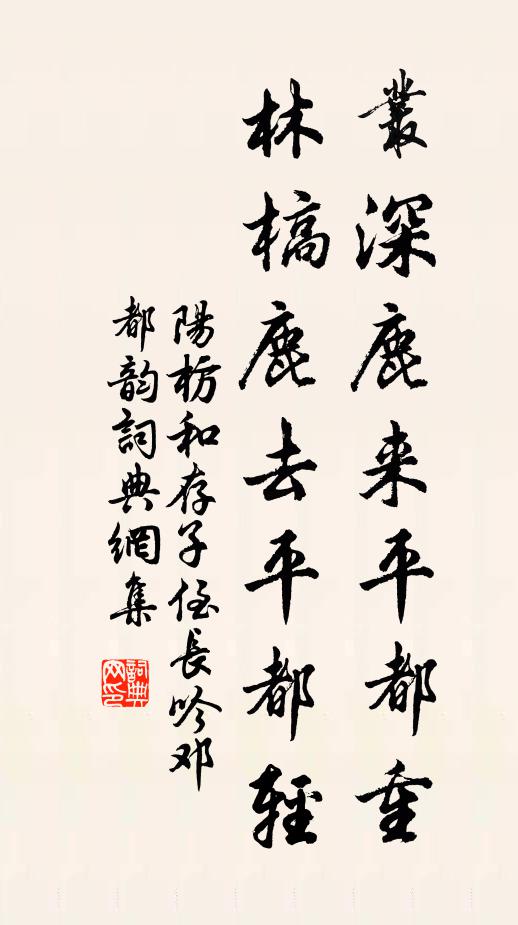 叢深鹿来平都重
林槁鹿去平都輕
陽枋和存子侄長吟邓
都韵詞典網集
詞典网印